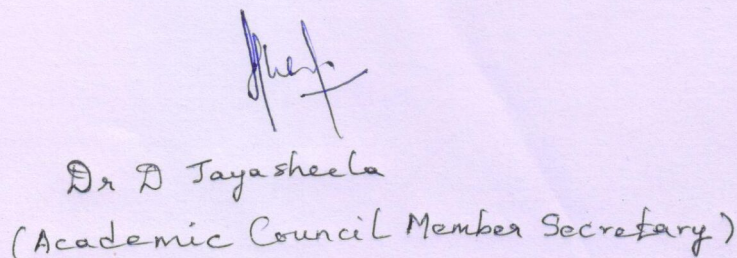 Dr D Jayasheela
(Academic Council Member Secretary)